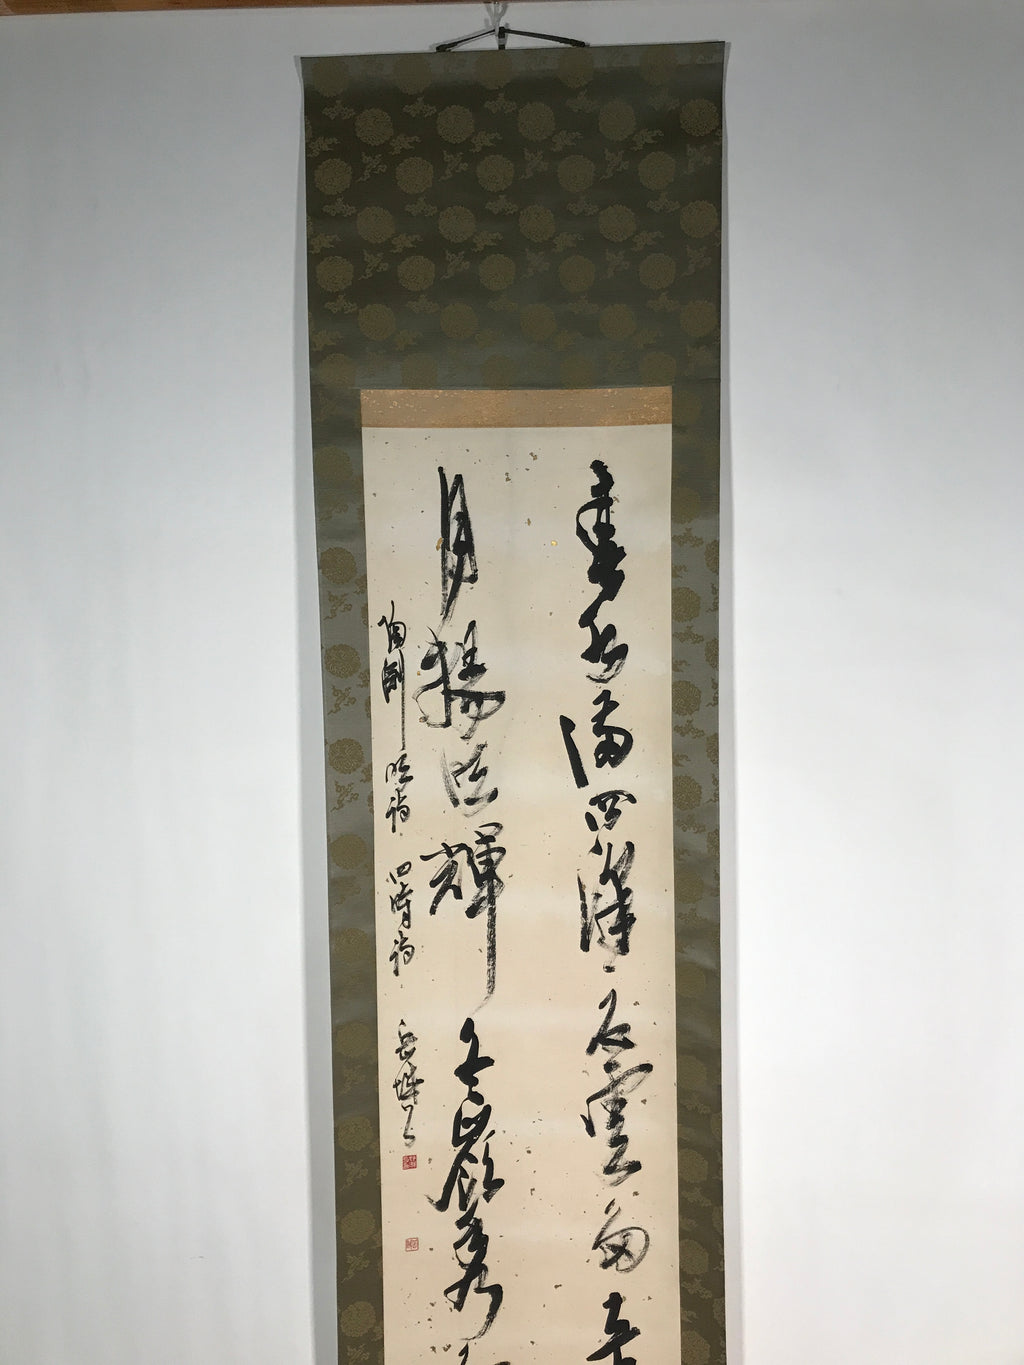 春水満四澤夏雲多
月揚明輝冬嶺秀
陶淵明詩 四時詩